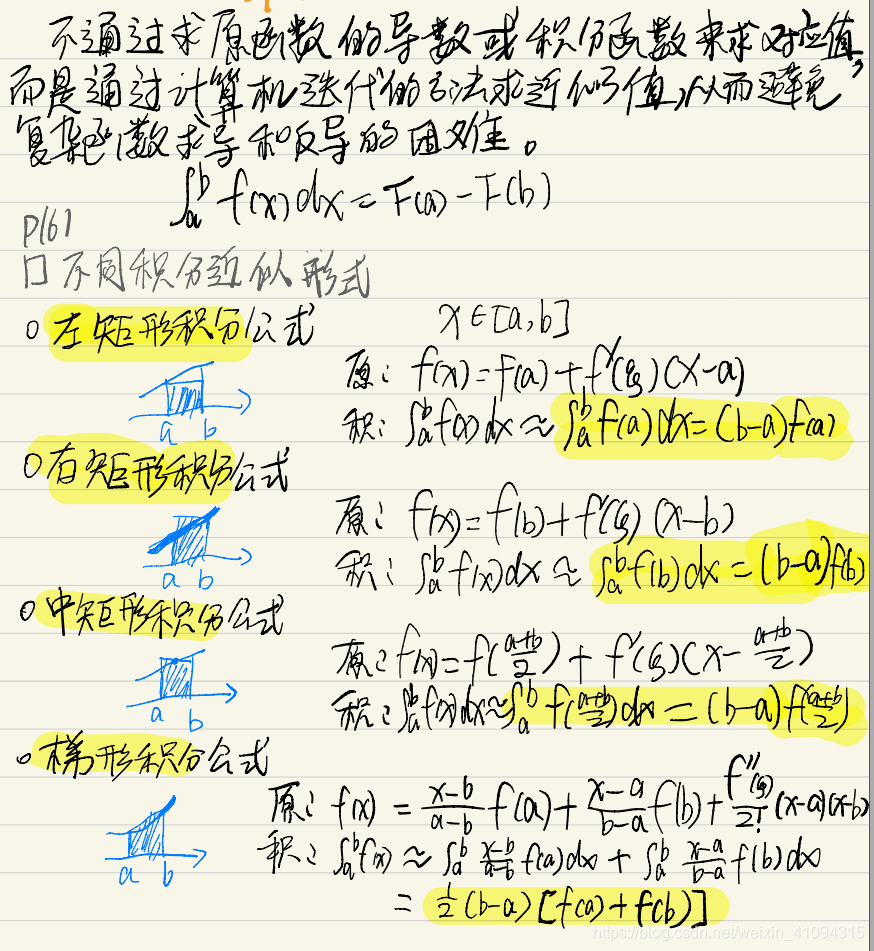 不通过求原函数的导数或积分函数来求对应值,
而是通过计算机迭代的方法求近似值,从而避免
复杂函数求导和反导的困难。
∫_a^b f(x)dx = F(a) - F(b)
P161
□ 不同积分近似形式
○ 左矩形积分公式 x∈[a,b]
原: f(x) = f(a) + f'(ξ)(x-a)
积: ∫_a^b f(x)dx ≈ ∫_a^b f(a)dx = (b-a)f(a)
a b
○ 右矩形积分公式
原: f(x) = f(b) + f'(ξ)(x-b)
积: ∫_a^b f(x)dx ≈ ∫_a^b f(b)dx = (b-a)f(b)
a b
○ 中矩形积分公式
原: f(x) = f((a+b)/2) + f'(ξ)(x - (a+b)/2)
积: ∫_a^b f(x)dx ≈ ∫_a^b f((a+b)/2)dx = (b-a)f((a+b)/2)
a b
○ 梯形积分公式
原: f(x) = (x-b)/(a-b) f(a) + (x-a)/(b-a) f(b) + f''(ξ)/2! (x-a)(x-b)
积: ∫_a^b f(x) ≈ ∫_a^b (x-b)/(a-b) f(a)dx + ∫_a^b (x-a)/(b-a) f(b)dx
a b
= 1/2 (b-a)[f(a)+f(b)]
https://blog.csdn.net/weixin_41094315